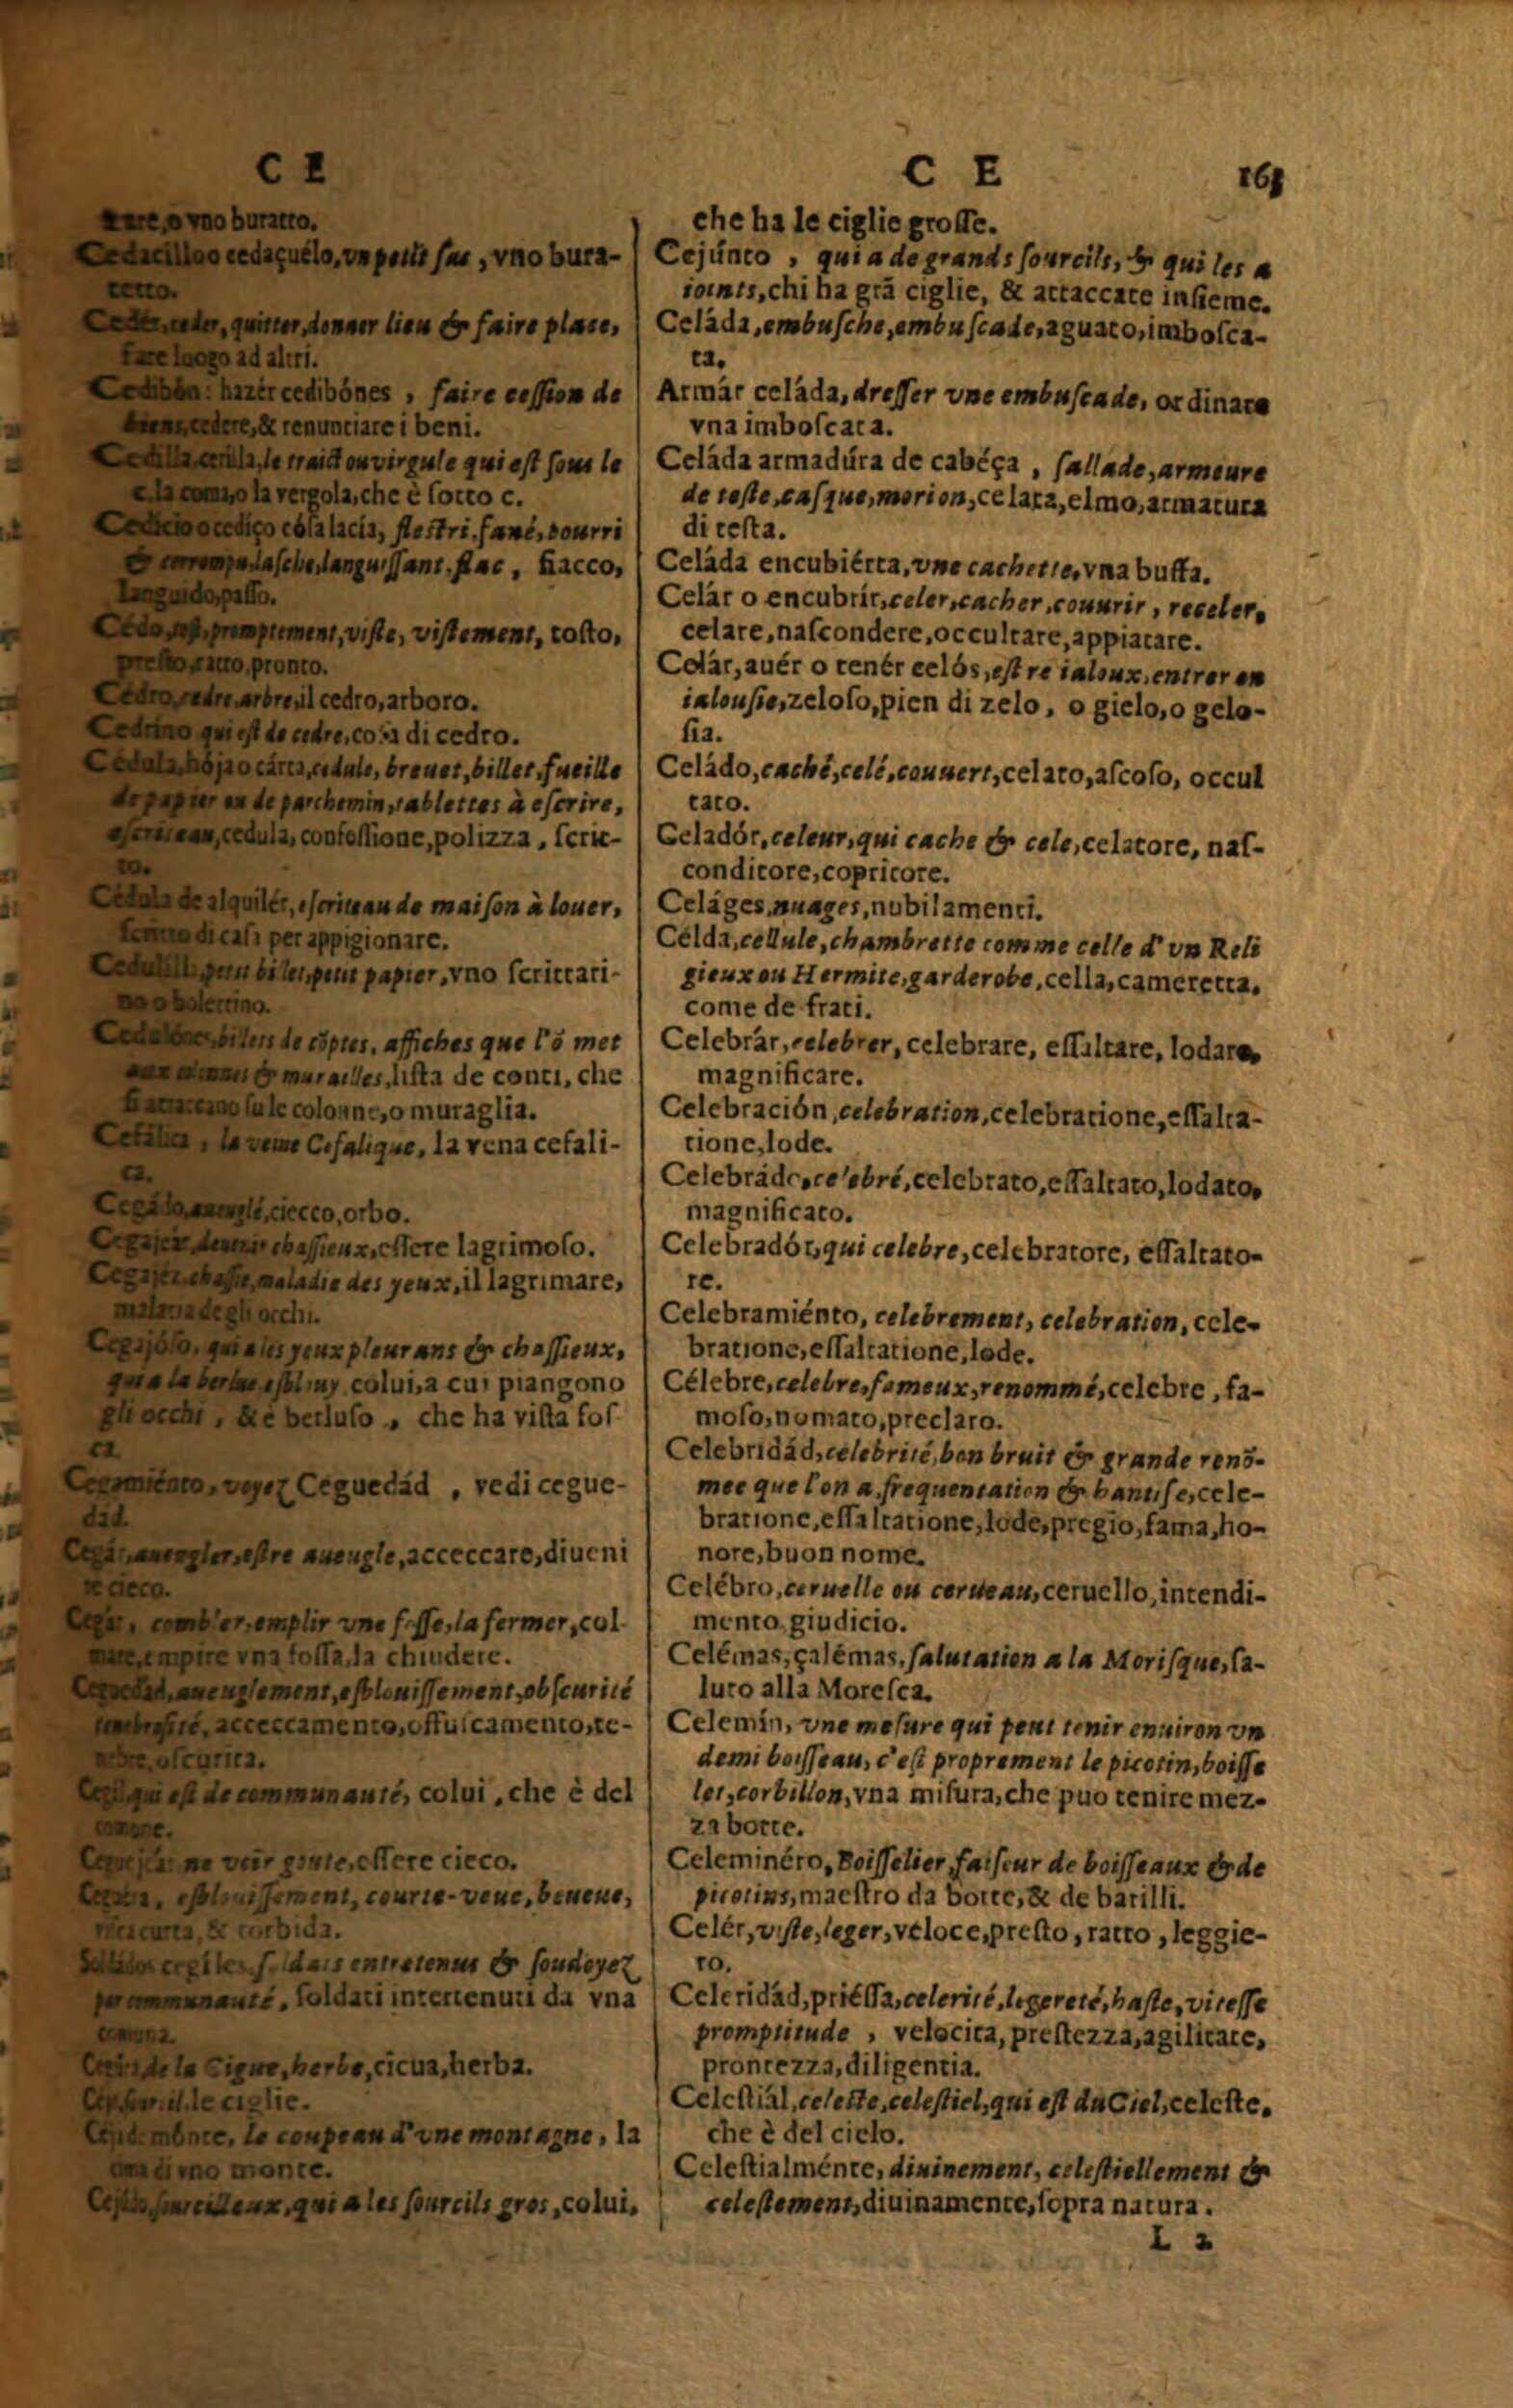 C E
tare, o vno buratto.
Cedacillo o cedaçuélo, vn petit sas, vno bura-
tetto.
Cedér, ceder, quitter, donner lieu & faire place,
fare luogo ad altri.
Cedibón: hazér cedibónes, faire cession de
biens, cedere, & renuntiare i beni.
Cedilla, cerilla, le traict ou virgule qui est sous le
c, la coma, o la vergola, che è sotto c.
Cedicio o cediço cósa lacía, flestri, fané, pourri
& corrompu, lasche, languissant, flac, fiacco,
languido, passo.
Cédo, tost, promptement, viste, vistement, tosto,
presto, ratto, pronto.
Cédro, cedre arbre, il cedro, arboro.
Cedrino qui est de cedre, cosa di cedro.
Cédula, hója o cárta, cedule, breuet, billet, fueille
de papier ou de parchemin, tablettes à escrire,
escriteau, cedula, confessione, polizza, scrit-
to.
Cédula de alquilér, escriteau de maison à louer,
scritto di casa per appigionare.
petit billet, petit papier, vno scrittari-
no o bolettino.
Cedulónes, billets de cõptes, affiches que l'õ met
& murailles, lista de conti, che
si attaccano su le colonne, o muraglia.
Cefálica, la veine Cefalique, la vena cefali-
ca.
Cegádo, aueuglé, ciecco, orbo.
Cegajeár, deuenir chassieux, essere lagrimoso.
Cegajez, chassie, maladie des yeux, il lagrimare,
malatia de gli occhi.
Cegajóso, qui a les yeux pleurans & chassieux,
qui a la berlue, colui, a cui piangono
gli occhi, & è berluso, che ha vista fos
ca.
Cegamiénto, voyez Ceguedád, vedi cegue-
dád.
Cegár, aueugler, estre aueugle, acceccare, diueni
re cieco.
Cegár, combler, emplir vne fosse, la fermer, col-
mare, empire vna fossa, la chiudere.
Ceguedad, aueuglement, esblouissement, obscurité
tenebrosité, acceccamento, offuscamento, te-
nebre, oscurita.
Cegil qui est de communauté, colui, che è del
comune.
Ceguejeár ne veoir goute, essere cieco.
Ceguera, esblouissement, courte-veue, beueue,
vista curta, & torbida.
Soldádos cegiles, soldats entretenus & soudoyez
par communauté, soldati intertenuti da vna
comuna.
de la Cigue, herbe, cicua, herba.
le ciglie.
mónte, le coupeau d'vne montagne, la
cima di vno monte.
sourcilleux, qui a les sourcils gros, colui,
C E 165
che ha le ciglie grosse.
Cejúnto, qui a de grands sourcils, & qui les a
ioints, chi ha grã ciglie, & attaccate insieme.
Celáda, embusche, embuscade, aguato, imbosca-
ta.
Armár celáda, dresser vne embuscade, ordinare
vna imboscata.
Celáda armadúra de cabéça, sallade, armeure
de teste, casque, morion, celata, elmo, armatura
di testa.
Celáda encubiérta, vne cachette, vna buffa.
Celár o encubrír, celer, cacher, couurir, receler,
celare, nascondere, occultare, appiatare.
Celár, auér o tenér celós, estre ialoux, entrer en
ialousie, zeloso, pien di zelo, o gielo, o gelo-
sia.
Celádo, caché, celé, couuert, celato, ascoso, occul
tato.
Celadór, celeur, qui cache & cele, celatore, nas-
conditore, copritore.
Celáges, nuages, nubilamenti.
Célda, cellule, chambrette comme celle d'vn Reli
gieux ou Hermite, garderobe, cella, cameretta,
come de frati.
Celebrár, celebrer, celebrare, essaltare, lodare,
magnificare.
Celebración, celebration, celebratione, essalta-
tione, lode.
Celebrádo, celebré, celebrato, essaltato, lodato,
magnificato.
Celebradór, qui celebre, celebratore, essaltato-
re.
Celebramiénto, celebrement, celebration, cele-
bratione, essaltatione, lode.
Célebre, celebre, fameux, renommé, celebre, fa-
moso, nomato, preclaro.
Celebridád, celebrité, bon bruit & grande renõ-
mee que l'on a, frequentation & hantise, cele-
bratione, essaltatione, lode, pregio, fama, ho-
nore, buon nome.
Celébro, ceruelle ou cerueau, ceruello, intendi-
mento, giudicio.
Celémas, çalémas, salutation a la Morisque, sa-
luto alla Moresca.
Celemín, vne mesure qui peut tenir enuiron vn
demi boisseau, c'est proprement le picotin, boisse
let, corbillon, vna misura, che puo tenire mez-
za botte.
Celeminéro, Boisselier, faiseur de boisseaux & de
picotins, maestro da botte, & de barilli.
Celér, viste, leger, veloce, presto, ratto, leggie-
ro.
Celeridád, priéssa, celerité, legereté, haste, vitesse
promptitude, velocita, prestezza, agilitate,
prontezza, diligentia.
Celestiál, celeste, celestiel, qui est du Ciel, celeste,
che è del cielo.
Celestialménte, diuinement, celestiellement &
celestement, diuinamente, sopra natura.
L 2